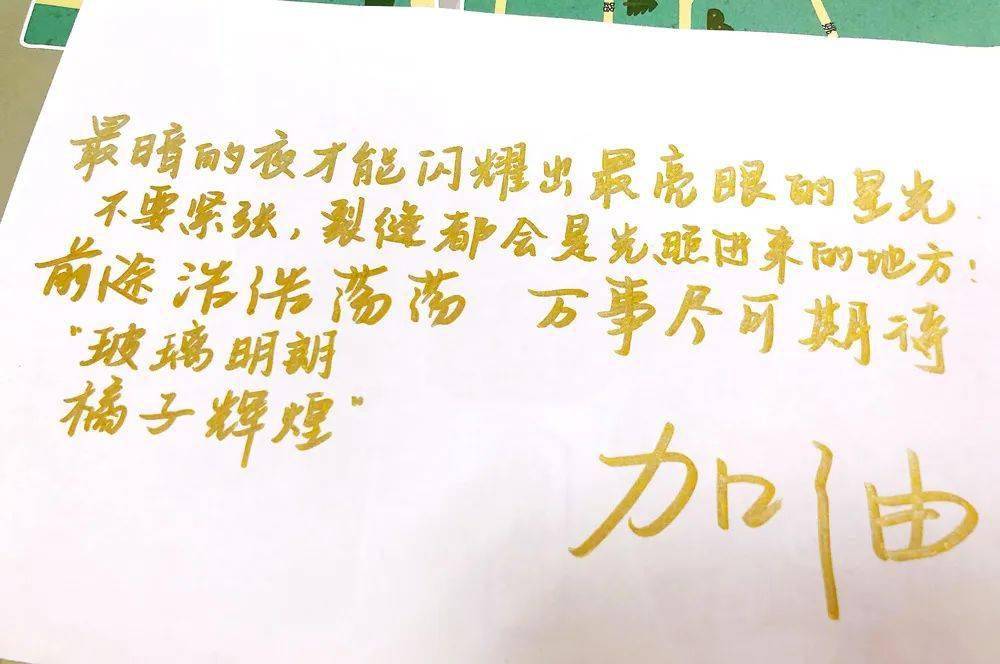 最暗的夜才能闪耀出最亮眼的星光
不要紧张，裂缝都会是光照进来的地方；
前途浩浩荡荡 万事尽可期待
"玻璃明朗
橘子辉煌"
加油